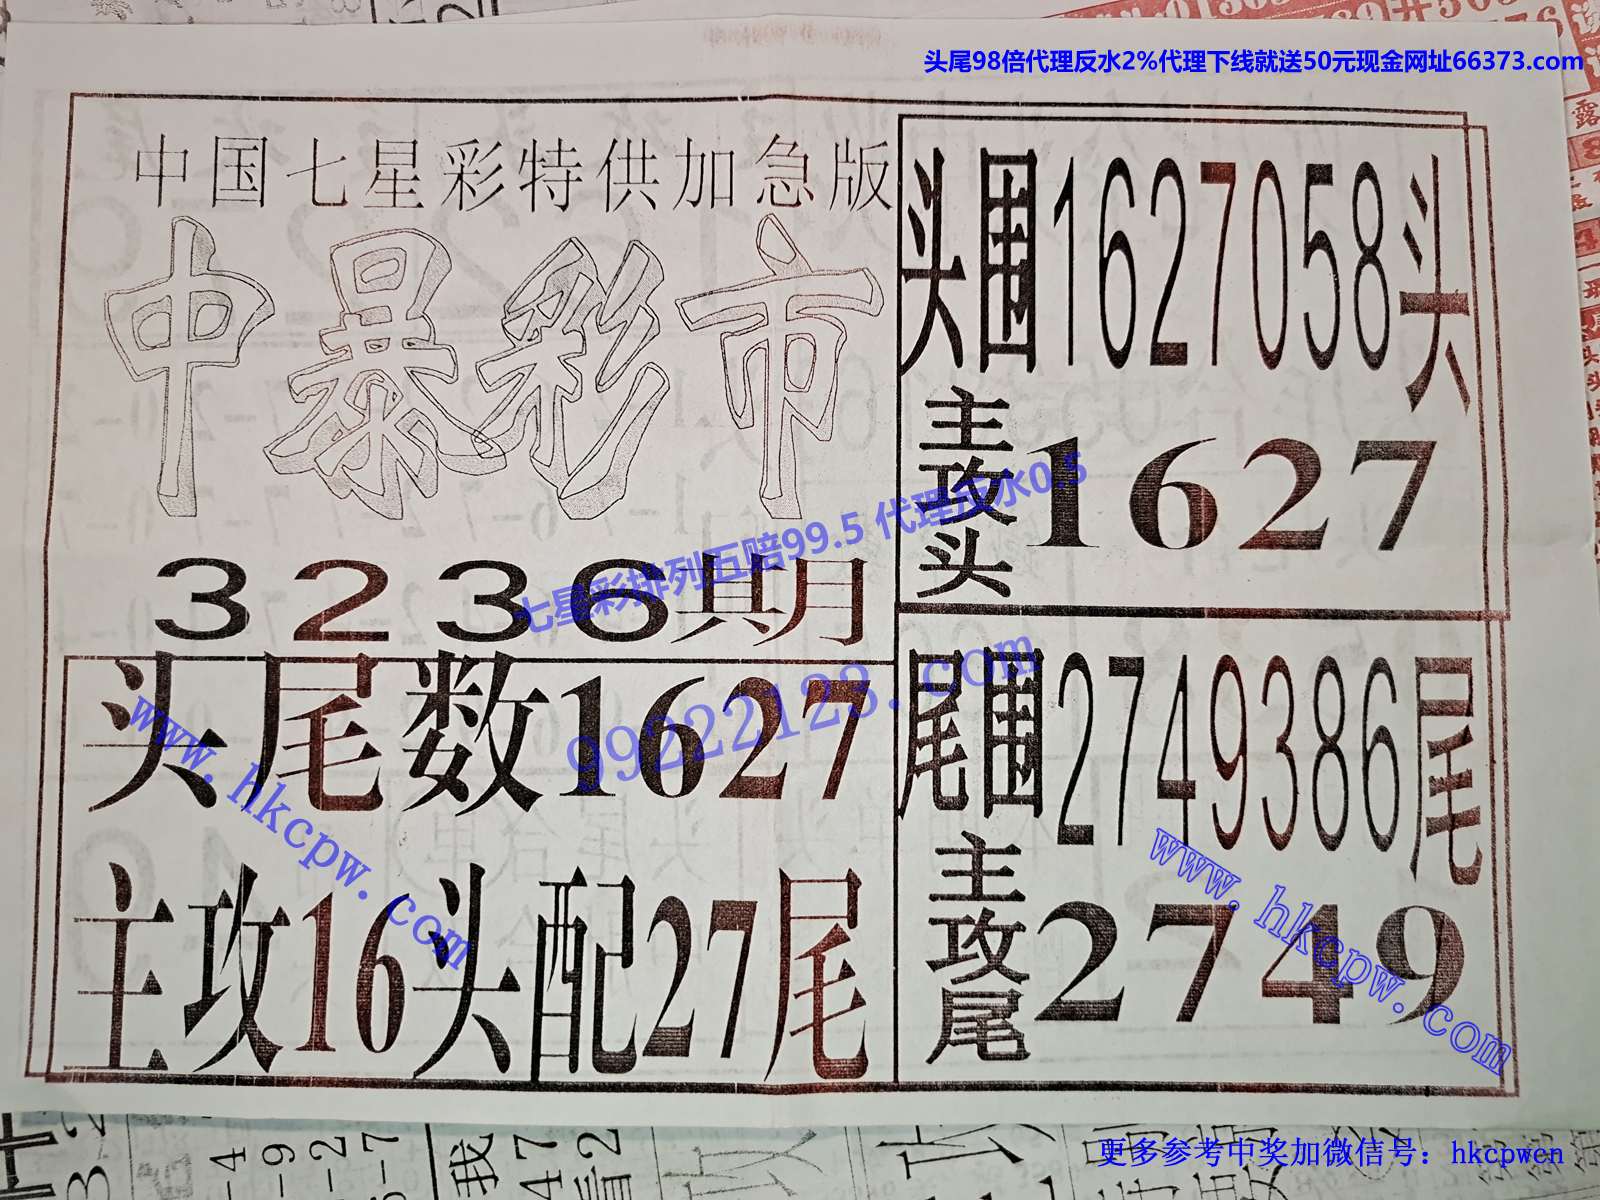 头尾98倍代理反水2%代理下线就送50元现金网址66373.com
中国七星彩特供加急版
中暴彩市
3236期
头尾数1627
主攻16头配27尾
头围1627058头
主攻头1627
尾围2749386尾
主攻尾2749
七星彩排列五赔99.5 代理反水0.5
99222123.com
www.hkcpw.com
www.hkcpw.com
更多参考中奖加微信号：hkcpwcn